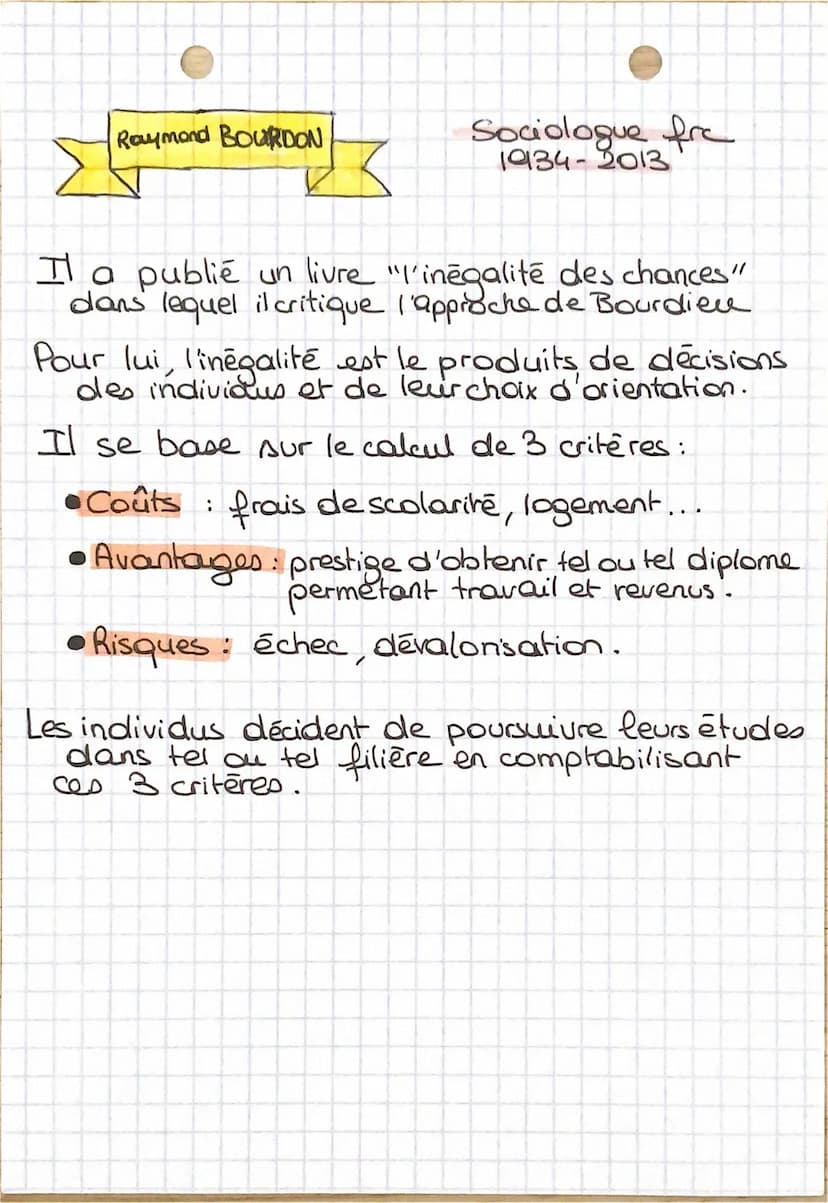 Raymond BOURDON
Sociologue frc
1934-2013
Il a publié un livre "l'inégalité des chances"
dans lequel il critique l'approche de Bourdieu
Pour lui, l'inégalité est le produits de décisions
des individus et de leur choix d'orientation.
Il se base sur le calcul de 3 critères :
• Coûts : frais de scolarité, logement...
• Avantages : prestige d'obtenir tel ou tel diplome
permétant travail et revenus.
• Risques : échec, dévalorisation.
Les individus décident de poursuivre leurs études
dans tel ou tel filière en comptabilisant
ces 3 critères.